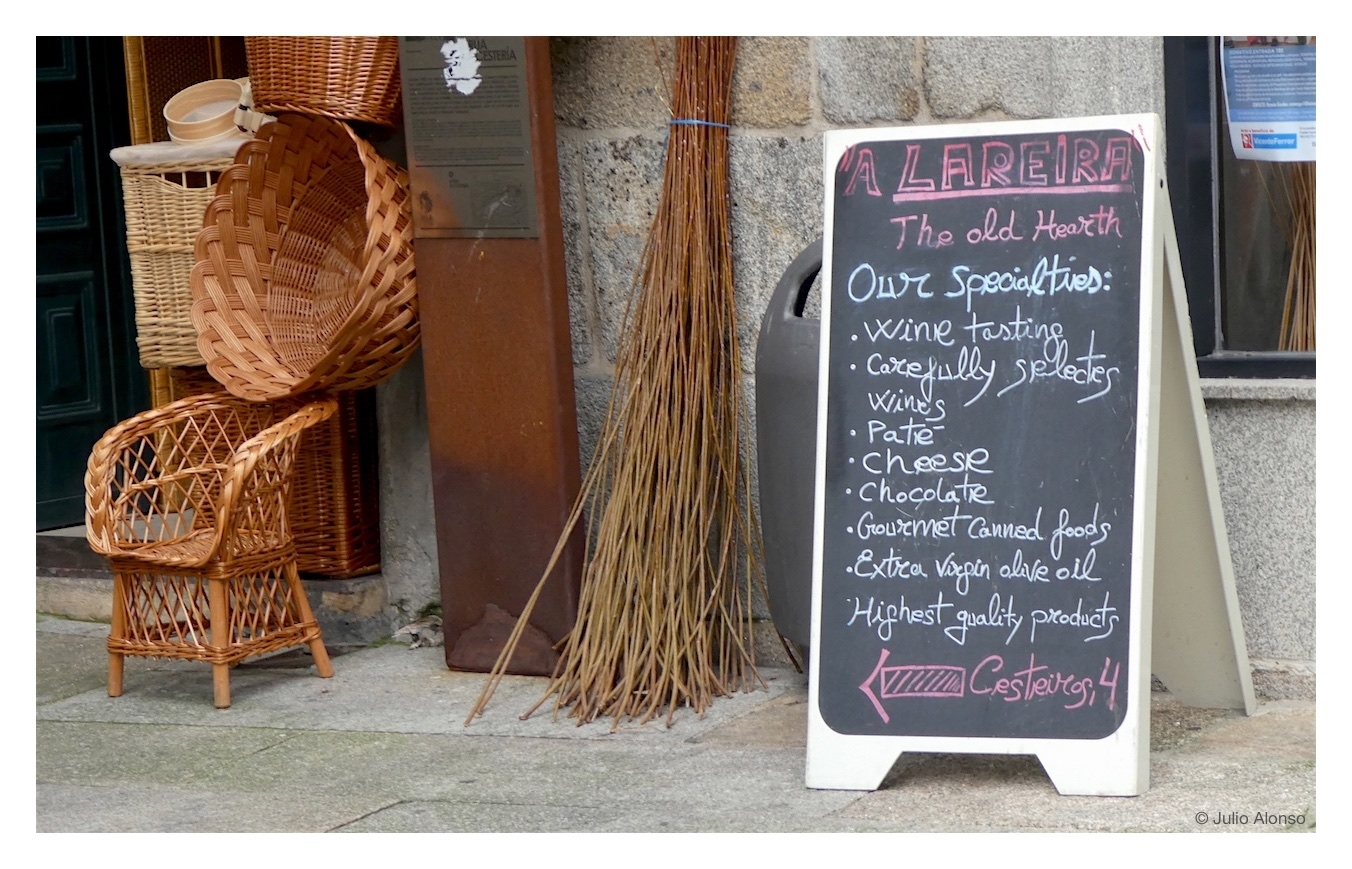 CESTERÍA
"A LAREIRA
The old Hearth
Our specialties:
. Wine tasting
. Carefully selectes
wines
. Patie
. Cheese
. Chocolate
. Gourmet canned foods
. Extra virgin olive oil
Highest quality products
Cesteiros, 4
Vicente Ferrer
© Julio Alonso